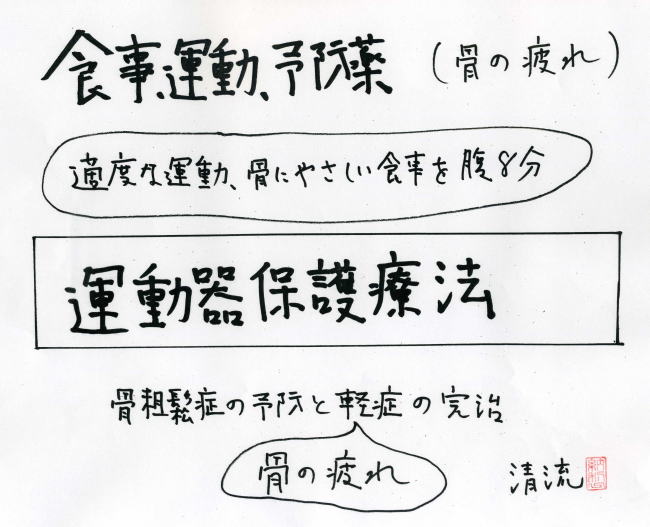 食事、運動、予防薬 (骨の疲れ)
適度な運動、骨にやさしい食事を腹8分
運動器保護療法
骨粗鬆症の予防と軽症の完治
骨の疲れ
清流